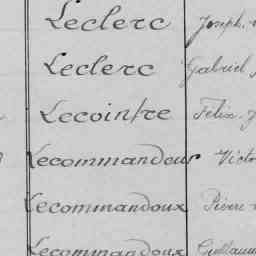 Leclerc Joseph
Leclerc Gabriel
Lecointre Félix
Lecommandeur Victo
Lecommandoux Pierre
Lecommandoux Guillaum